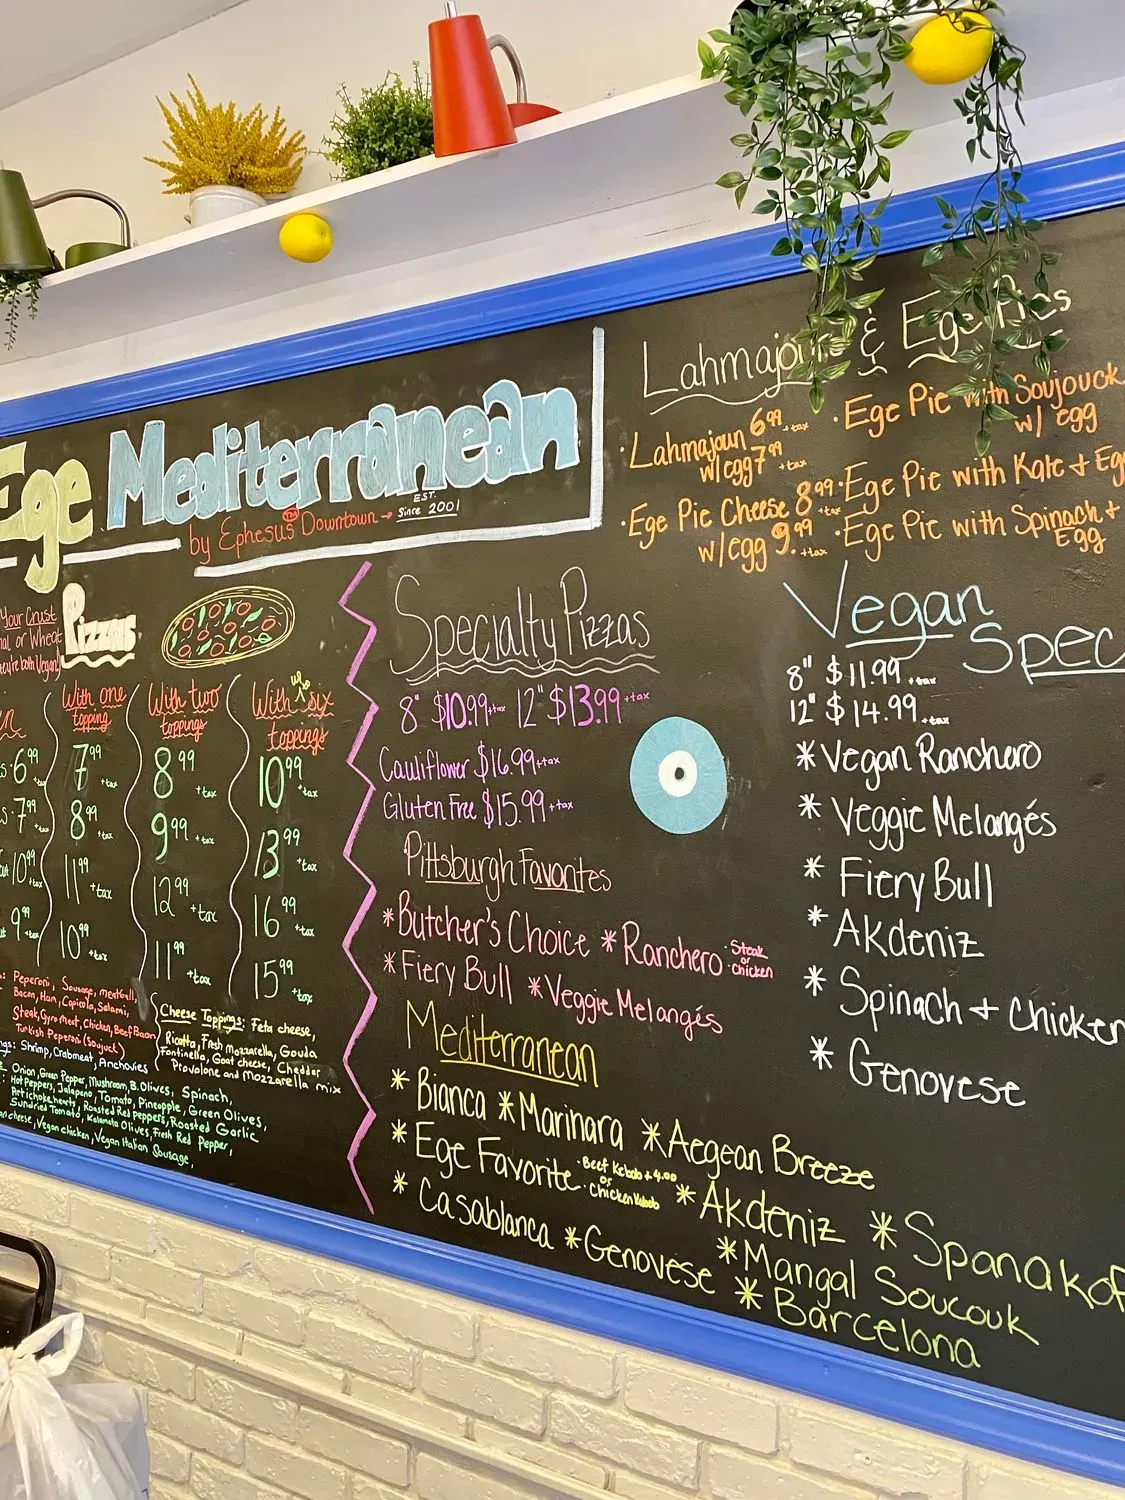 Ege Mediterranean
EST.
Since 2001
by Ephesus TM Downtown →
Your Crust
or Wheat
they're both Vegan)
Pizzas
With one
topping
With two
toppings
With up to six
toppings
6.99 +tax
7.99 +tax
8.99 +tax
10.99 +tax
7.99 +tax
8.99 +tax
9.99 +tax
13.99 +tax
10.99 +tax
11.99 +tax
12.99 +tax
16.99 +tax
9.99 +tax
10.99 +tax
11.99 +tax
15.99 +tax
Peperoni, Sausage, meatball,
Bacon, Ham, Capicola, Salami,
Steak, Gyro meat, Chicken, Beef Bacon
Turkish Peperoni (Soujuck)
Shrimp, Crabmeat, Anchovies
Onion, Green Pepper, Mushroom, B. Olives, Spinach,
Hot Peppers, Jalapeno, Tomato, Pineapple, Green Olives,
Artichoke hearts, Roasted Red peppers, Roasted Garlic
Sundried Tomato, Kalamata Olives, Fresh Red Pepper,
cheese, Vegan chicken, Vegan Italian Sausage,
Cheese Toppings: Feta cheese,
Ricotta, Fresh Mozzarella, Gouda
Fontinella, Goat cheese, Cheddar
Provolone and Mozzarella mix
Specialty Pizzas
8" $10.99 +tax 12" $13.99 +tax
Cauliflower $16.99 +tax
Gluten Free $15.99 +tax
Pittsburgh Favorites
*Butcher's Choice *Ranchero · Steak
or
· chicken
*Fiery Bull *Veggie Melangés
Mediterranean
*Bianca *Marinara *Aegean Breeze
*Ege Favorite · Beef Kebab + 4.00
or
· Chicken Kebab
*Akdeniz *Spanakop
*Casablanca *Genovese *Mangal Soucouk
*Barcelona
Lahmajoun & Ege Pies
· Lahmajoun 6.99 +tax
w/egg 7.99 +tax
· Ege Pie Cheese 8.99 +tax
w/egg 9.99 +tax
· Ege Pie with Soujouck
w/ egg
· Ege Pie with Kale + Eg
· Ege Pie with Spinach +
Egg
Vegan
Spec
8" $11.99 +tax
12" $14.99 +tax
*Vegan Ranchero
* Veggie Melangés
* Fiery Bull
* Akdeniz
* Spinach + Chicken
* Genovese